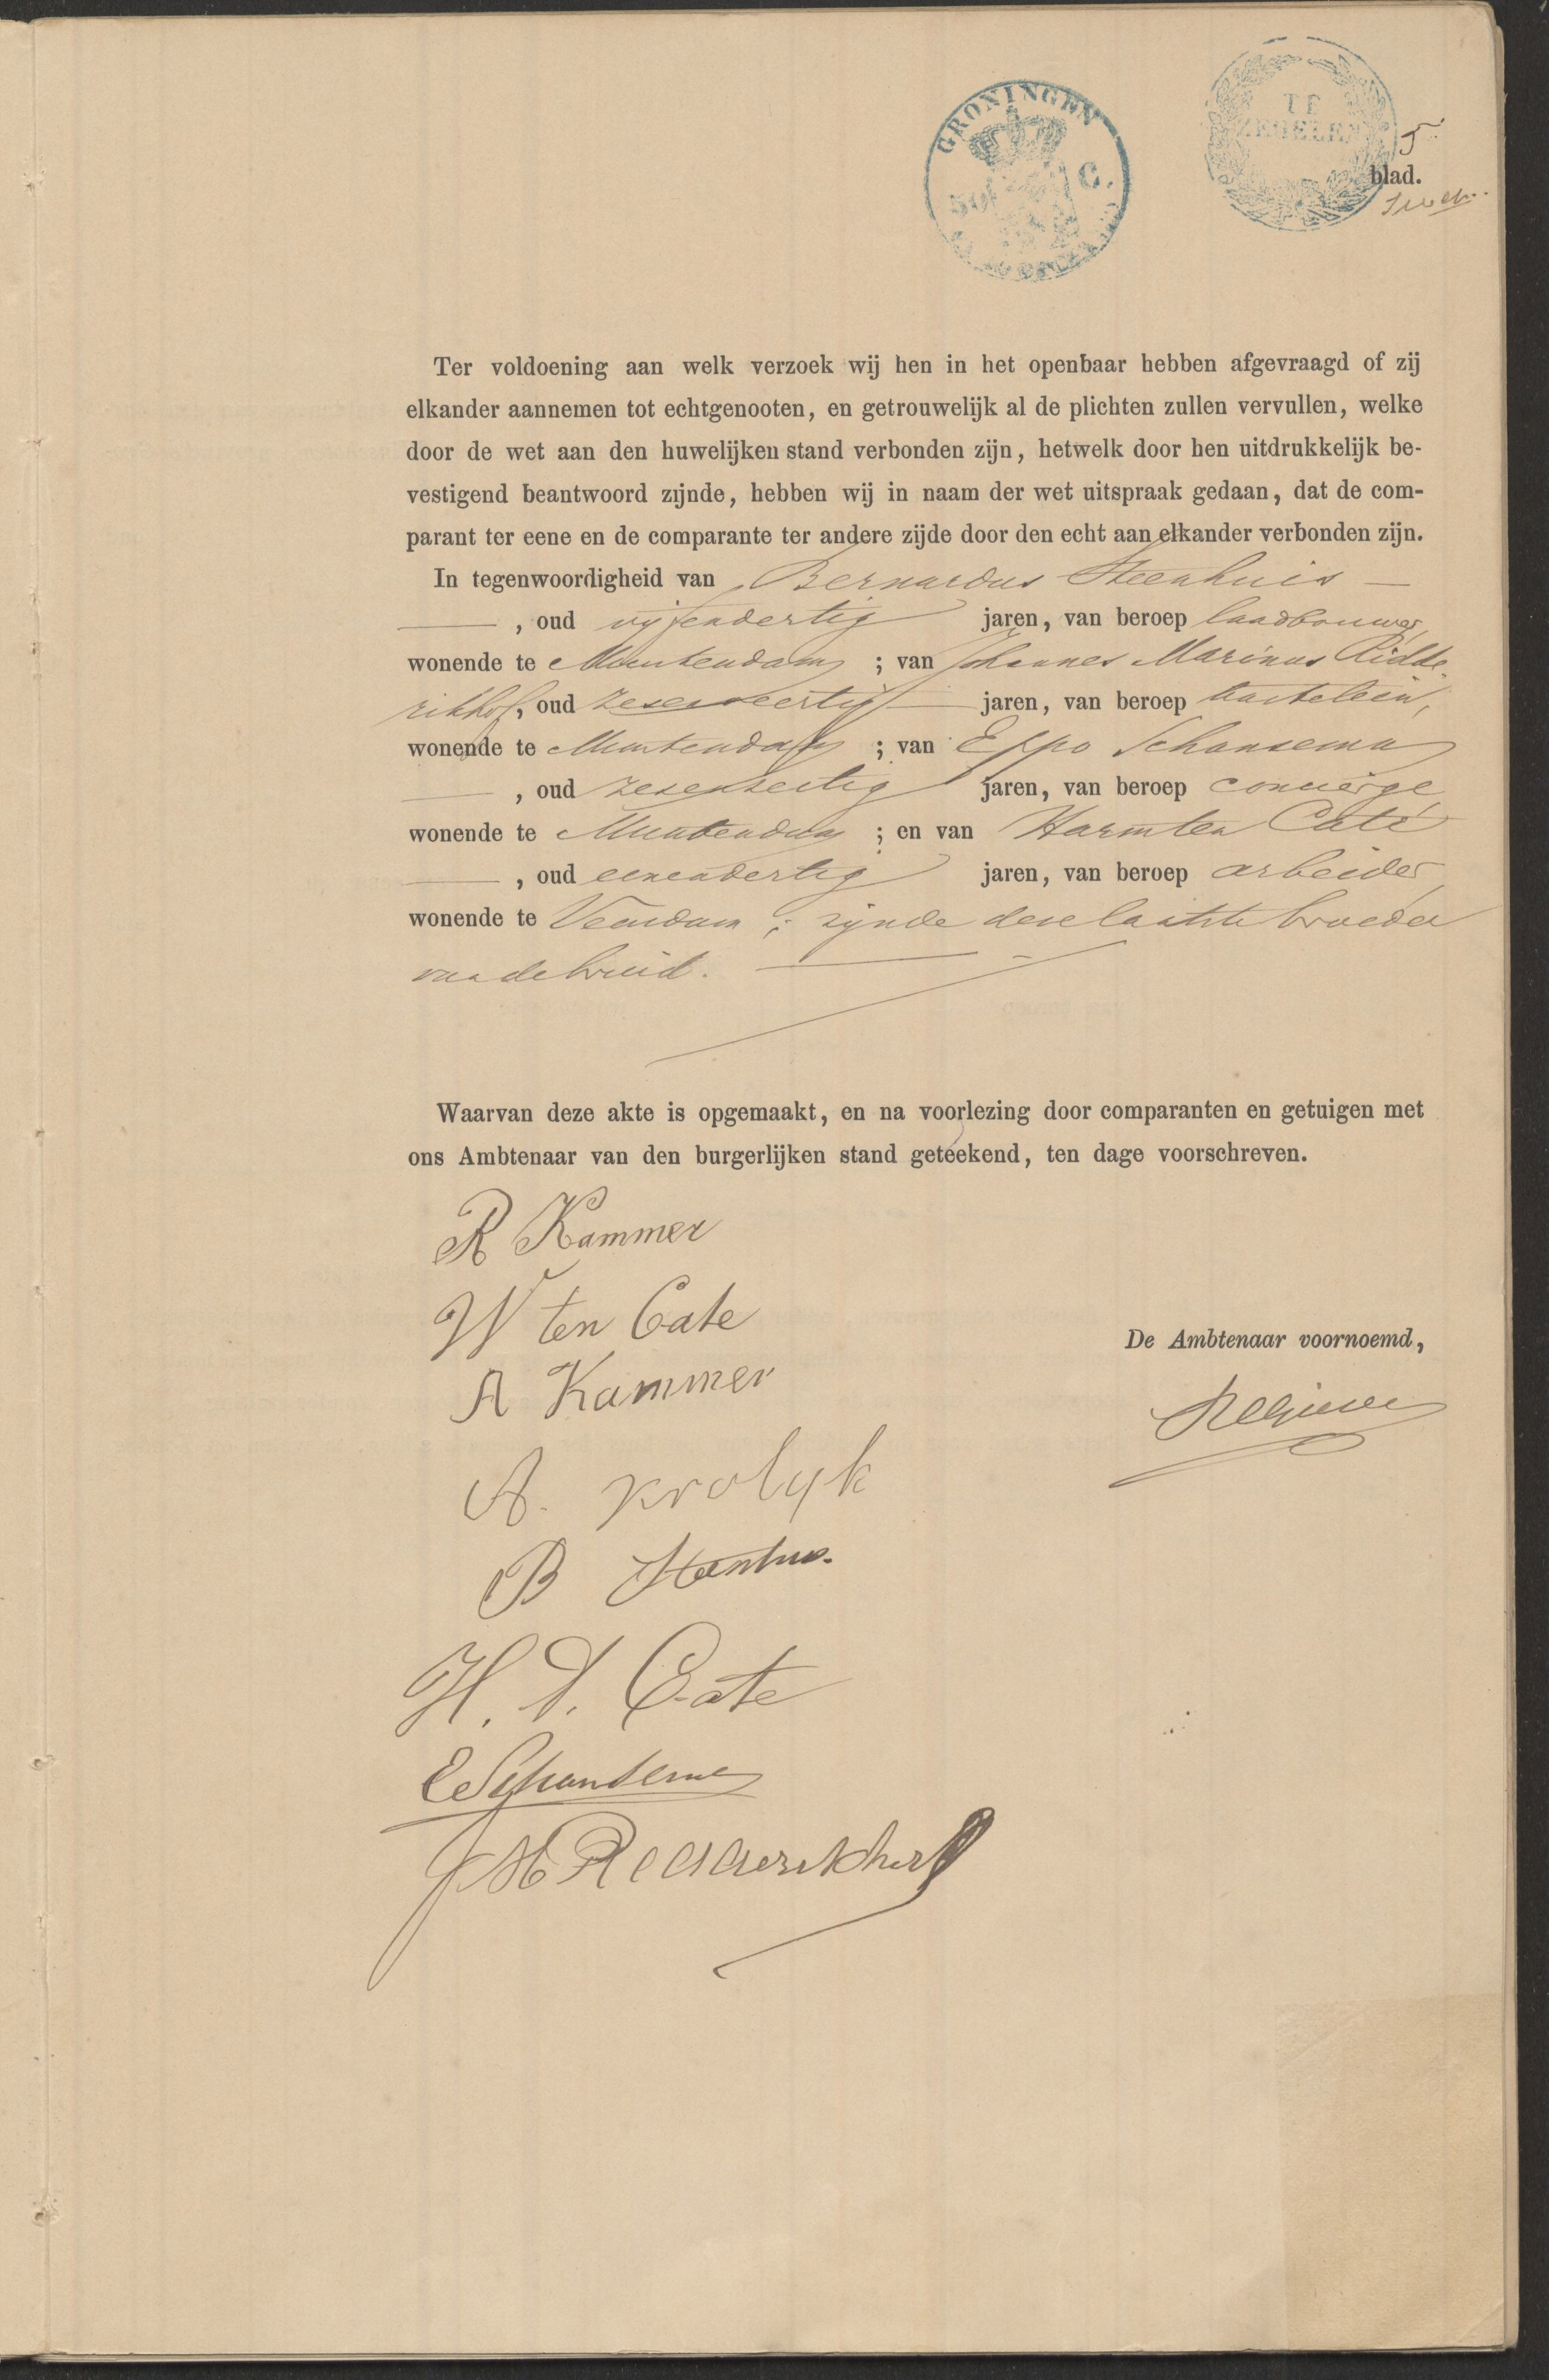 GRONINGEN
50 C.
TE
ZEGELEN
5
blad.
Ter voldoening aan welk verzoek wij hen in het openbaar hebben afgevraagd of zij
elkander aannemen tot echtgenooten, en getrouwelijk al de plichten zullen vervullen, welke
door de wet aan den huwelijken stand verbonden zijn, hetwelk door hen uitdrukkelijk be-
vestigend beantwoord zijnde, hebben wij in naam der wet uitspraak gedaan, dat de com-
parant ter eene en de comparante ter andere zijde door den echt aan elkander verbonden zijn.
In tegenwoordigheid van Bernardus Steenhuis
, oud vijfendertig jaren, van beroep landbouwer,
wonende te Muntendam ; van Johannes Marinus Ridde
rikhof, oud zesenveertig jaren, van beroep kastelein,
wonende te Muntendam ; van Eppo Schansema
, oud zesenzestig jaren, van beroep concierge
wonende te Muntendam ; en van Harm ten Cate
, oud eenendertig jaren, van beroep arbeider,
wonende te Veendam ; zijnde deze laatste broeder
van de bruid.
Waarvan deze akte is opgemaakt, en na voorlezing door comparanten en getuigen met
ons Ambtenaar van den burgerlijken stand geteekend, ten dage voorschreven.
R Kammer
W ten Cate
De Ambtenaar voornoemd,
A Kammer
A. Krolyk
B Steenhuis
H. T. Cate
E Schansema
J M Ridderikhof